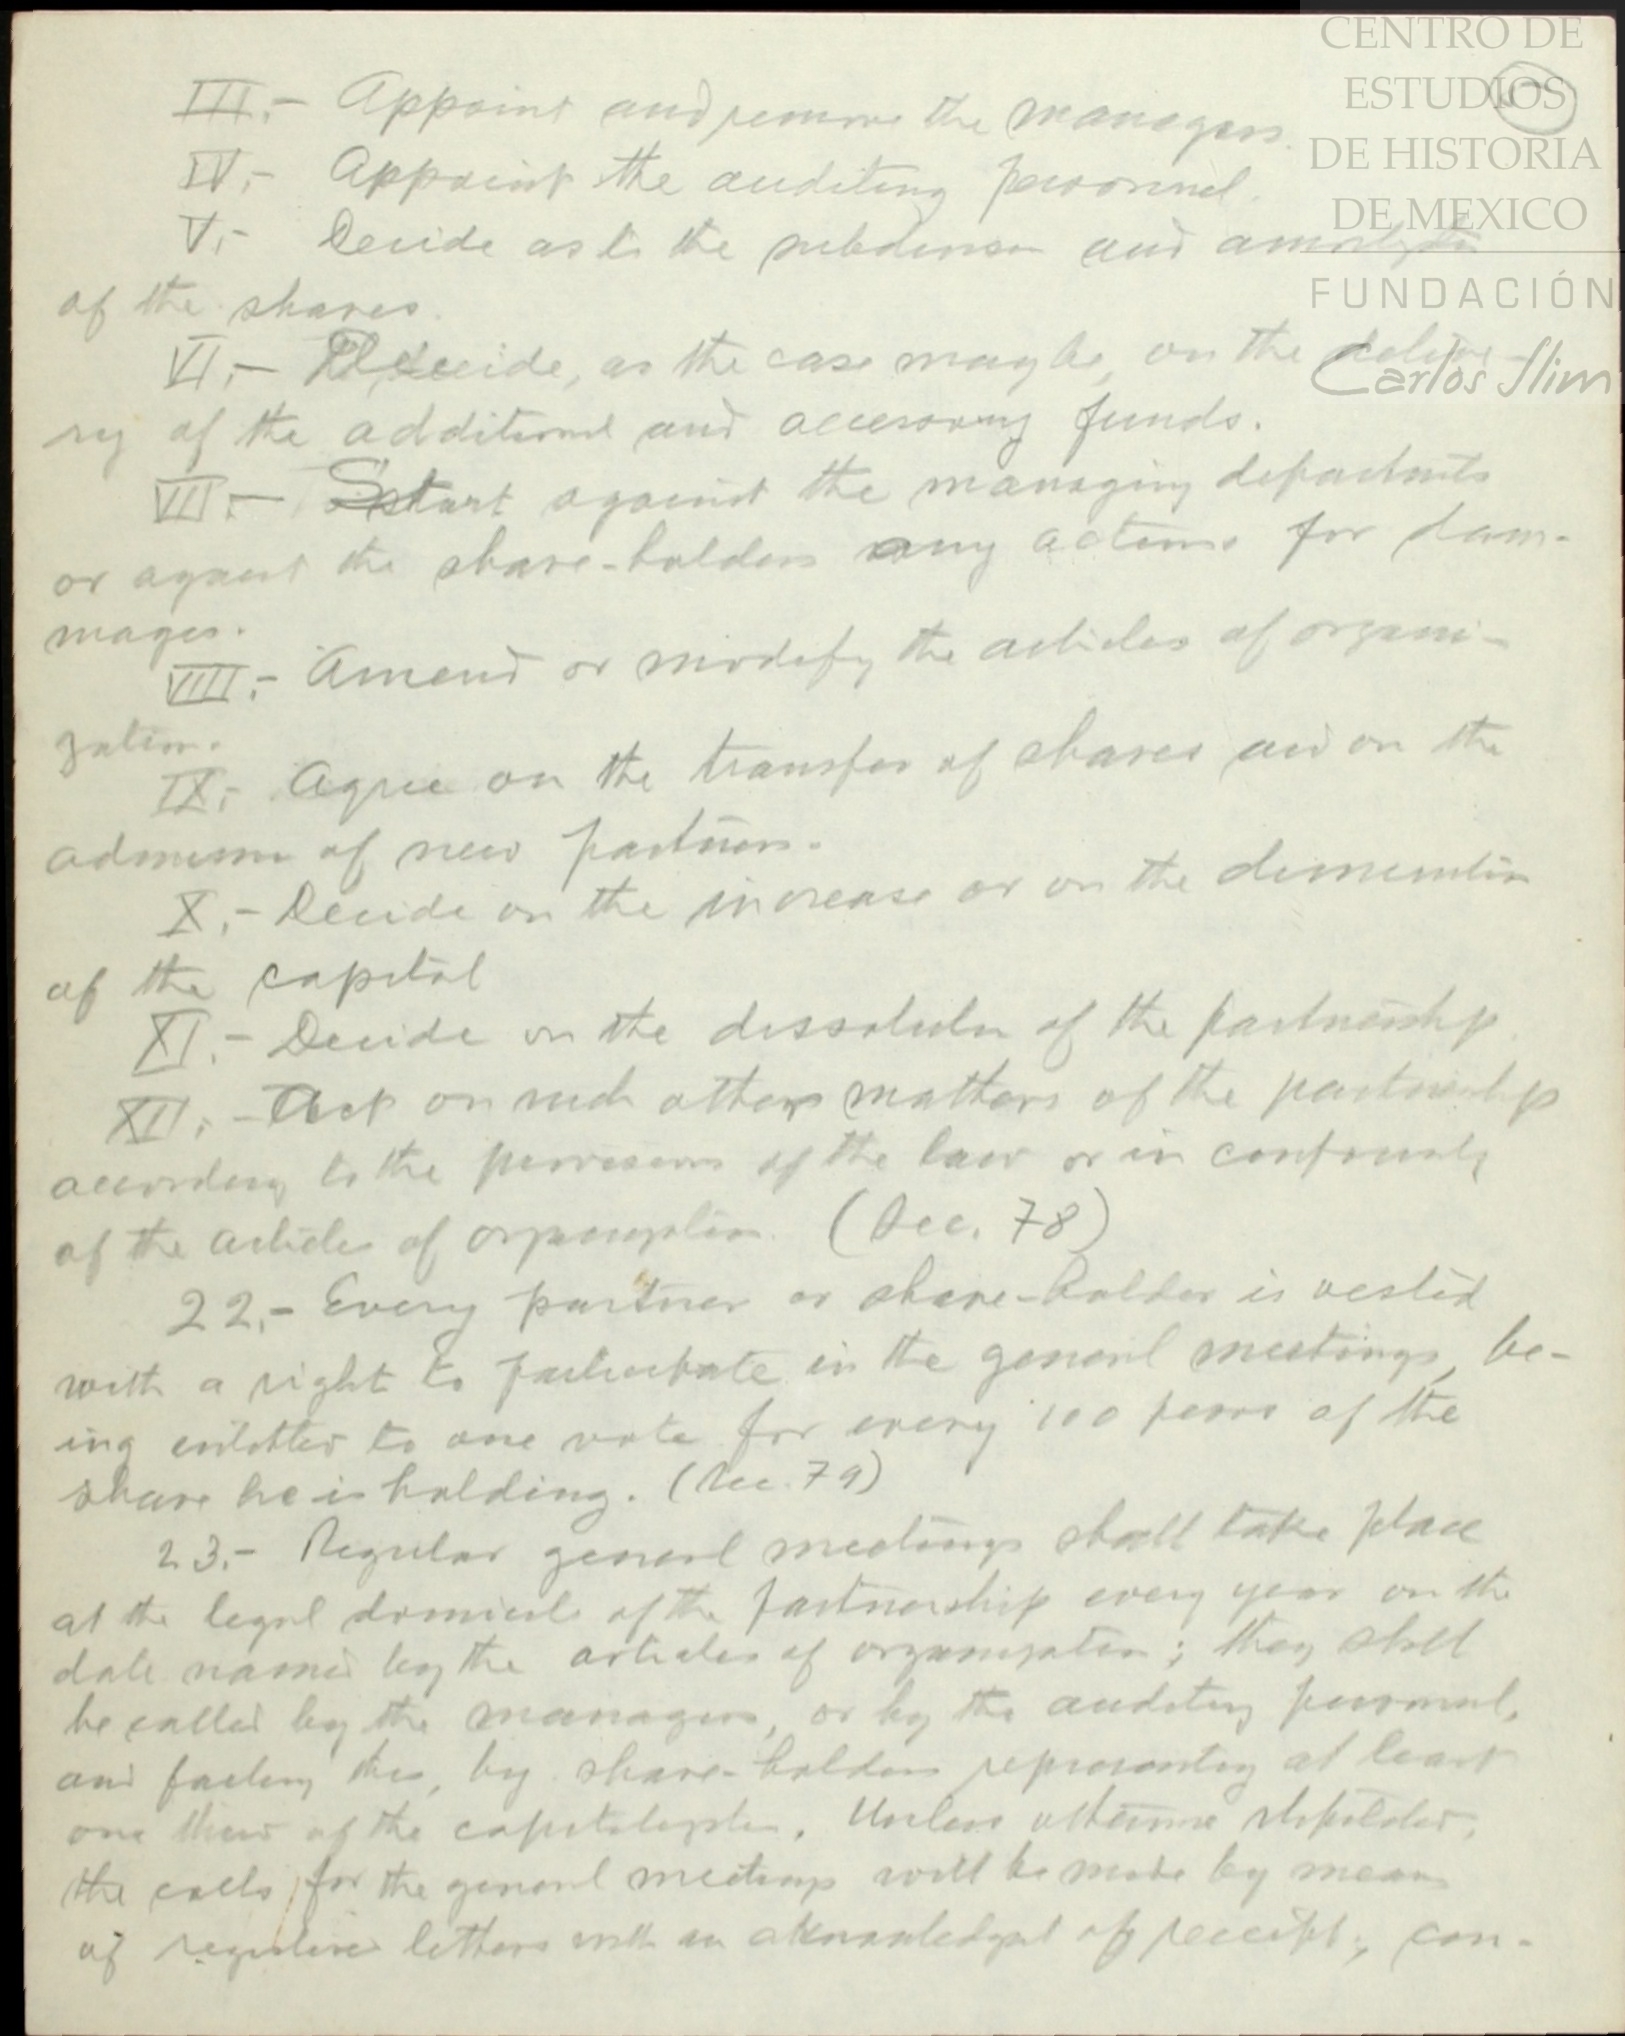 CENTRO DE
ESTUDIOS
DE HISTORIA
DE MEXICO
FUNDACIÓN
Carlos Slim
III.- Appoint and remove the managers.
IV.- Appoint the auditing personnel.
V.- Decide as to the subdivision and amortization
of the shares.
VI.- Decide, as the case may be, on the delive-
ry of the additional and accessory funds.
VII.- Start against the managing departments
or against the share-holders any actions for dam-
mages.
VIII.- Amend or modify the articles of organi-
zation.
IX.- Agree on the transfer of shares and on the
admission of new partners.
X.- Decide on the increase or on the diminution
of the capital
XI.- Decide on the dissolution of the partnership.
XII.- Act on such others matters of the partnership
according to the provisions of the law or in conformity
of the articles of organization. (Sec. 78)
22.- Every partner or share-holder is vested
with a right to participate in the general meetings, be-
ing entitled to one vote for every 100 pesos of the
share he is holding. (Sec. 79)
23.- Regular general meetings shall take place
at the legal domicile of the partnership every year on the
date named by the articles of organization; they shall
be called by the managers, or by the auditing personnel,
and failing this, by share-holders representing at least
one third of the capitalization. Unless otherwise stipulated,
the calls for the general meetings will be made by means
of registered letters with an acknowledgt of receipt, con-